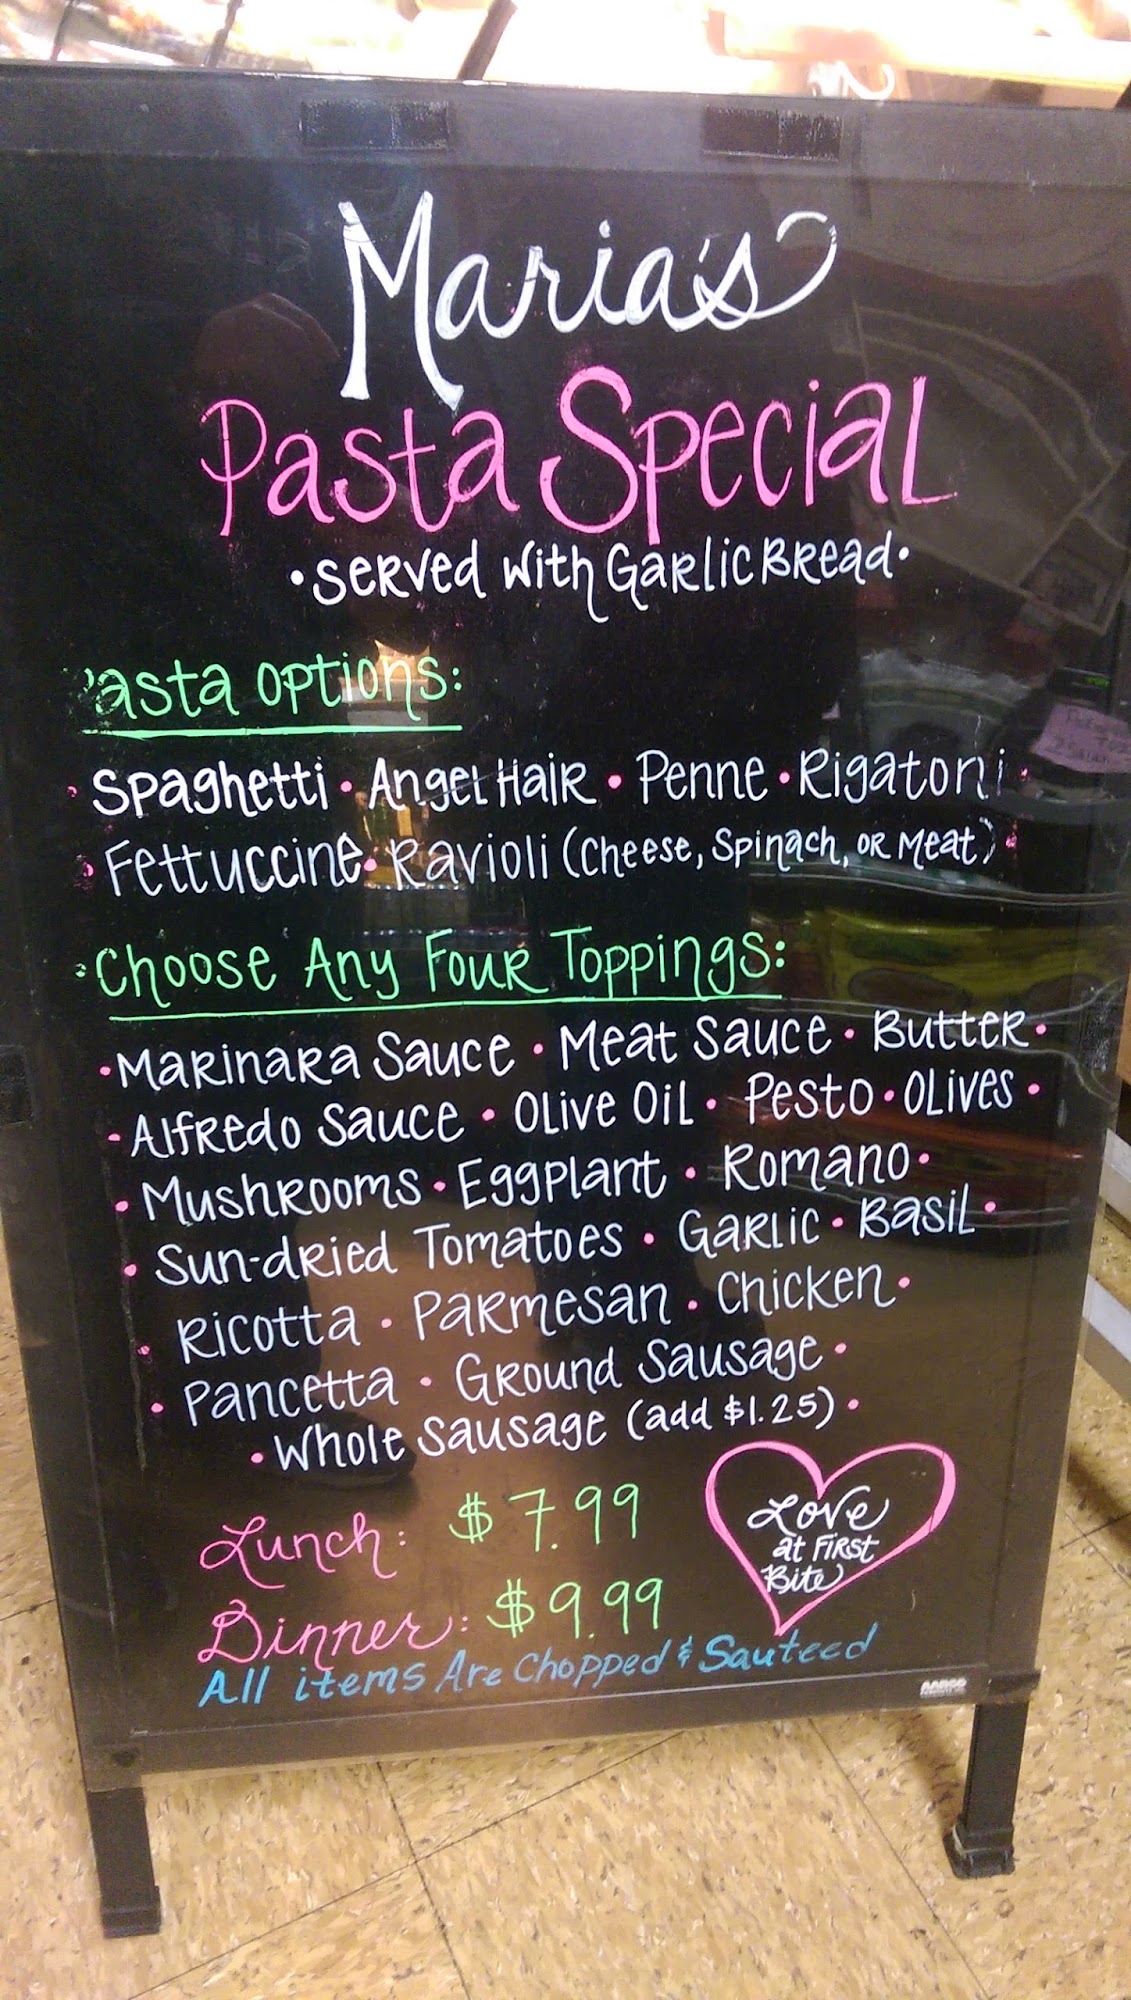 Maria's
Pasta Special
• Served with Garlic Bread •
Pasta Options:
• Spaghetti • Angel Hair • Penne • Rigatoni •
• Fettuccine • Ravioli (Cheese, Spinach, or Meat) •
• Choose Any Four Toppings:
• Marinara Sauce • Meat Sauce • Butter •
• Alfredo Sauce • Olive Oil • Pesto • Olives •
• Mushrooms • Eggplant • Romano •
• Sun-dried Tomatoes • Garlic • Basil •
• Ricotta • Parmesan • Chicken •
• Pancetta • Ground Sausage •
• Whole Sausage (add $1.25) •
Lunch: $7.99
Dinner: $9.99
Love
at First
Bite
All items Are Chopped & Sauteed